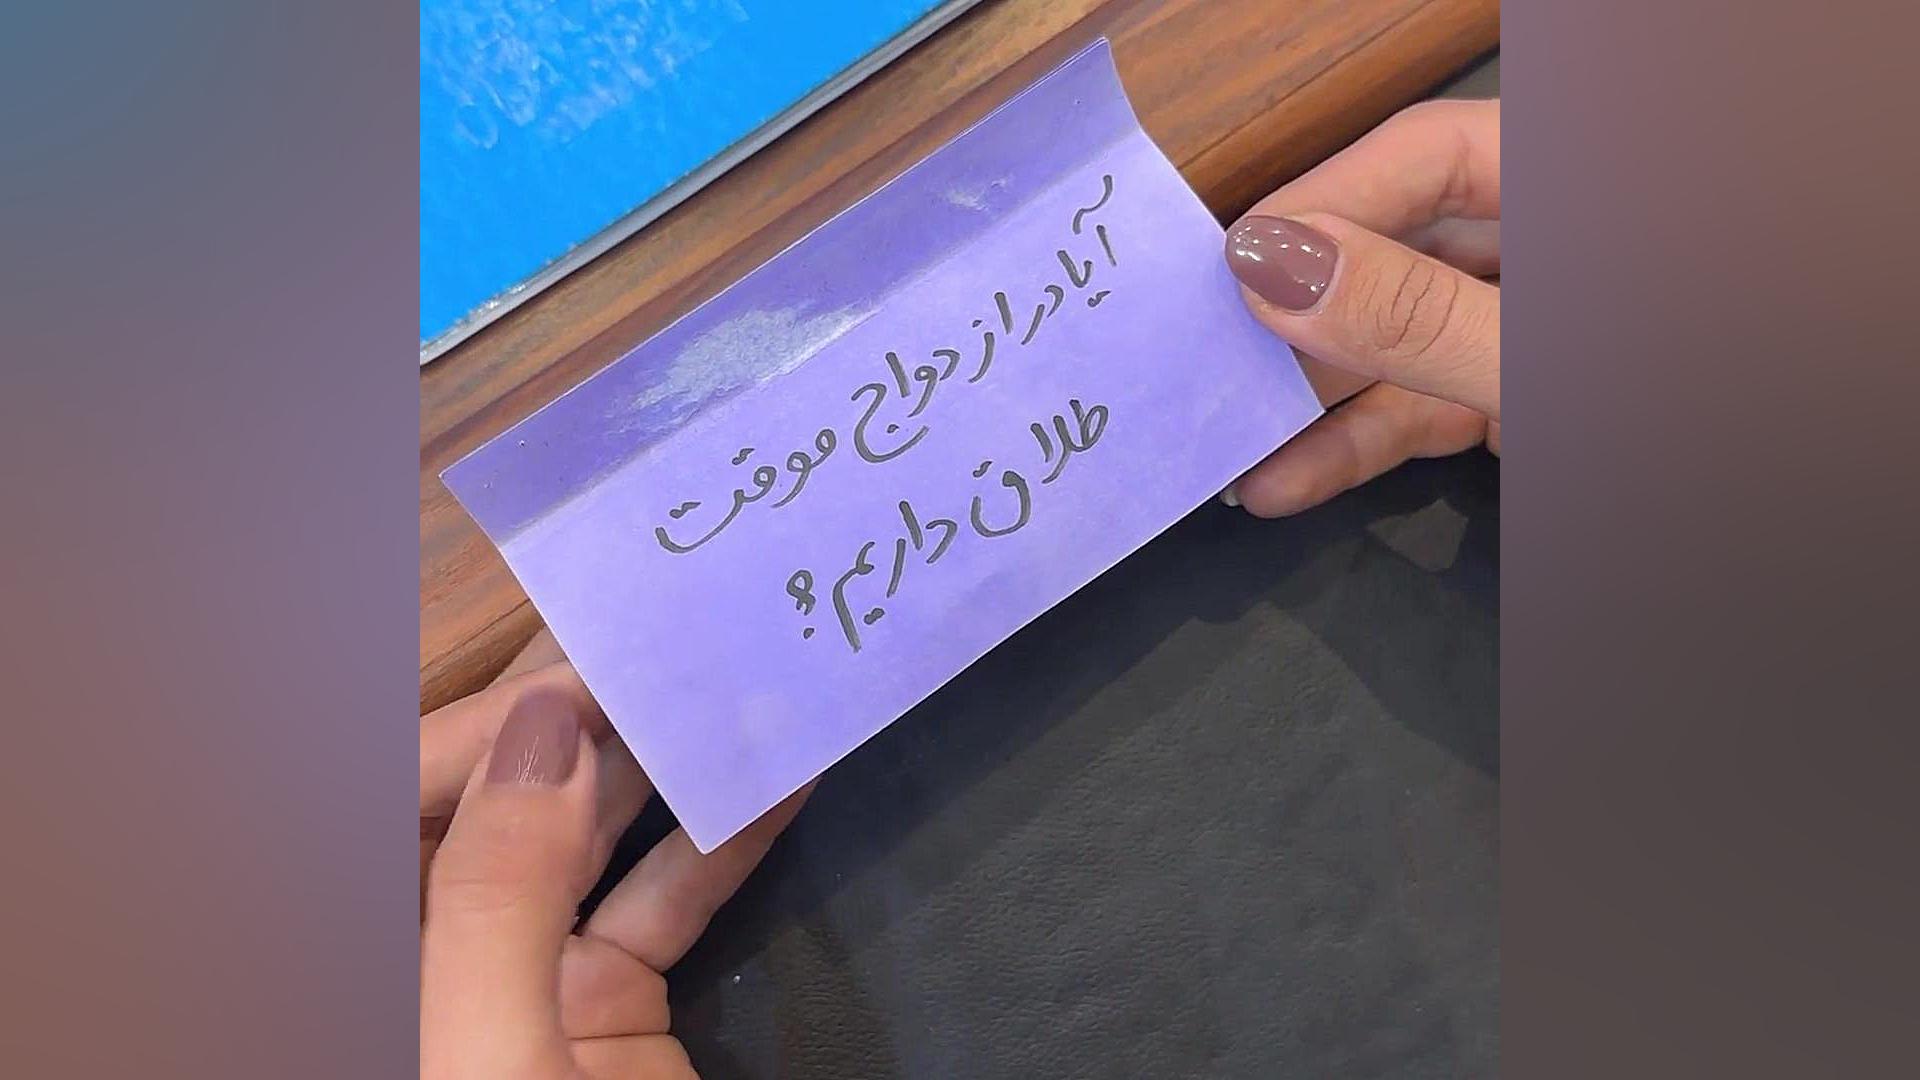 آیا در ازدواج موقت
طلاق داریم؟